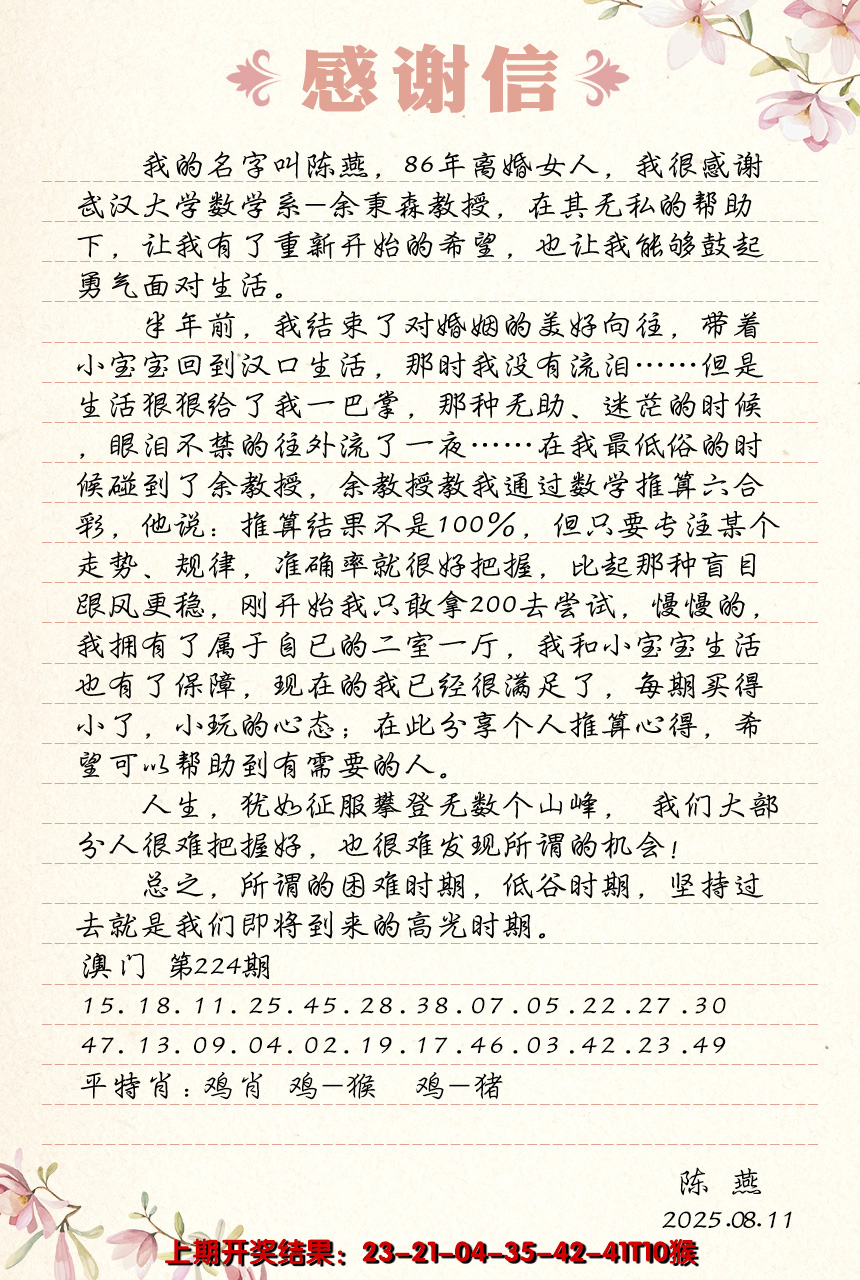 感谢信
我的名字叫陈燕，86年离婚女人，我很感谢
武汉大学数学系—余秉森教授，在其无私的帮助
下，让我有了重新开始的希望，也让我能够鼓起
勇气面对生活。
半年前，我结束了对婚姻的美好向往，带着
小宝宝回到汉口生活，那时我没有流泪……但是
生活狠狠给了我一巴掌，那种无助、迷茫的时候
，眼泪不禁的往外流了一夜……在我最低俗的时
候碰到了余教授，余教授教我通过数学推算六合
彩，他说：推算结果不是100%，但只要专注某个
走势、规律，准确率就很好把握，比起那种盲目
跟风更稳，刚开始我只敢拿200去尝试，慢慢的，
我拥有了属于自已的二室一厅，我和小宝宝生活
也有了保障，现在的我已经很满足了，每期买得
小了，小玩的心态；在此分享个人推算心得，希
望可以帮助到有需要的人。
人生，犹如征服攀登无数个山峰， 我们大部
分人很难把握好，也很难发现所谓的机会！
总之，所谓的困难时期，低谷时期，坚持过
去就是我们即将到来的高光时期。
澳门 第224期
15.18.11.25.45.28.38.07.05.22.27.30
47.13.09.04.02.19.17.46.03.42.23.49
平特肖：鸡肖 鸡—猴 鸡—猪
陈 燕
2025.08.11
上期开奖结果：23-21-04-35-42-41T10猴